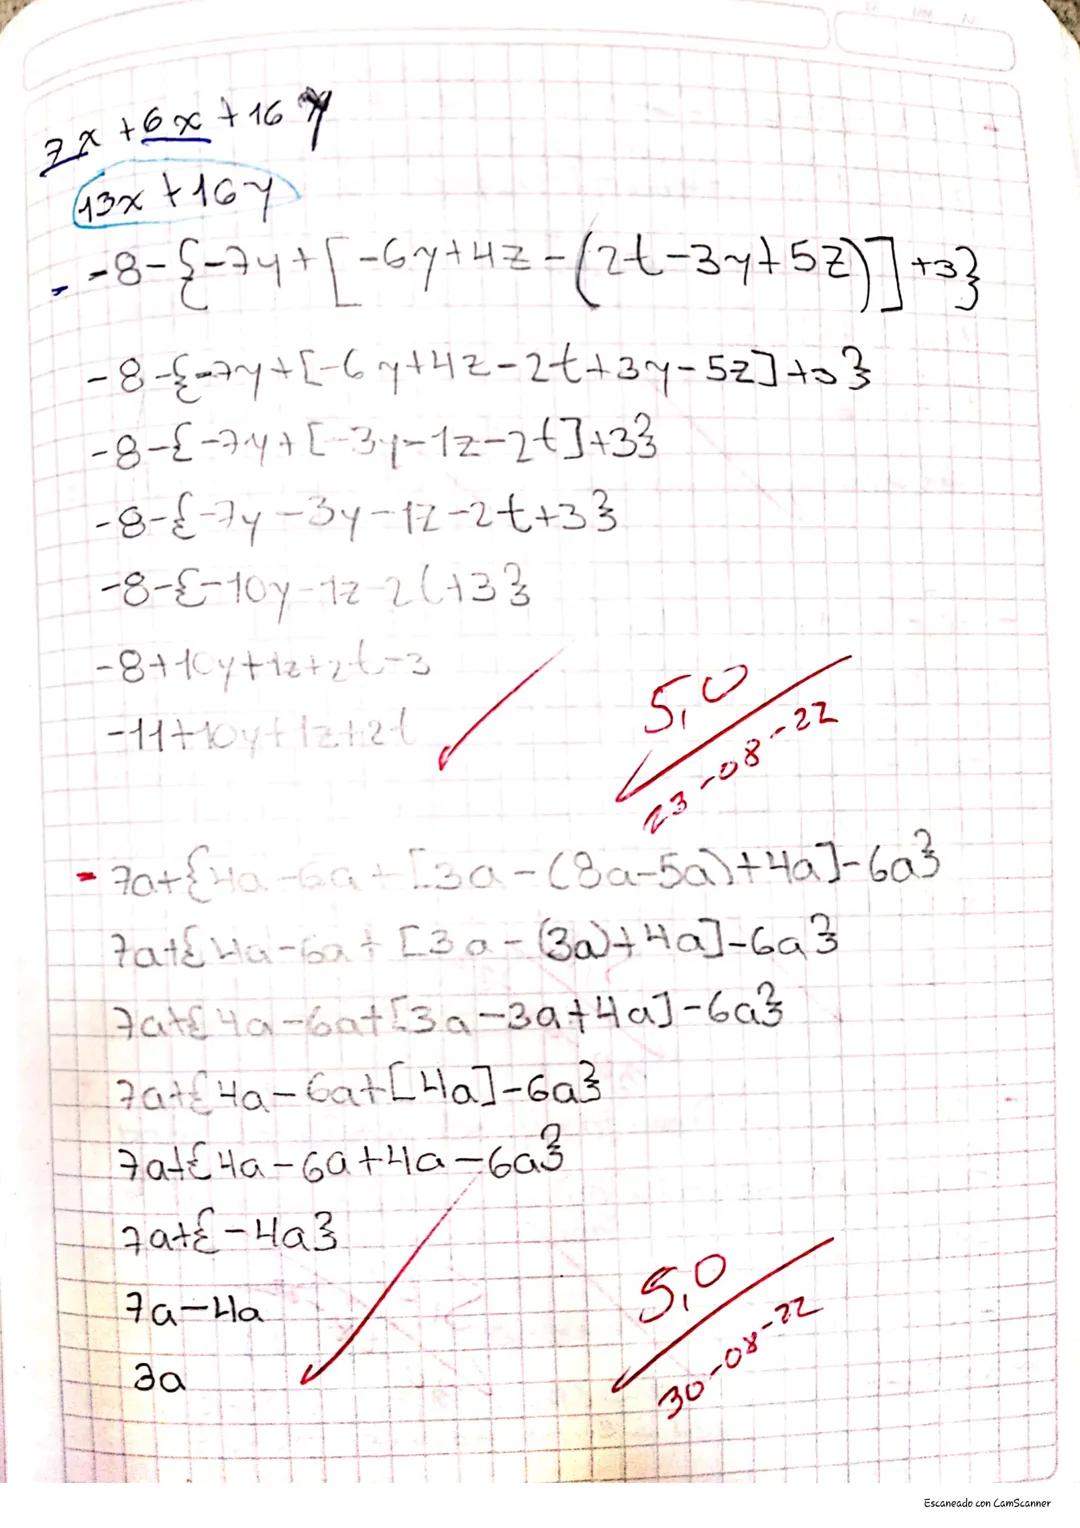 7x + 6x + 16y
13x + 16y
- -8-{-7y+[-6y+4z-(2t-3y+5z)]+3}
-8-{-7y+[-6y+4z-2t+3y-5z]+3}
-8-{-7y+[-3y-1z-2t]+3}
-8-{-7y-3y-1z-2t+3}
-8-{-10y-1z-2t+3}
-8+10y+1z+2t-3
-11+10y+1z+2t
5,0
23-08-22
- 7a+{4a-6a+[3a-(8a-5a)+4a]-6a}
7a+{4a-6a+[3a-(3a)+4a]-6a}
7a+{4a-6a+[3a-3a+4a]-6a}
7a+{4a-6a+[4a]-6a}
7a+{4a-6a+4a-6a}
7a+{-4a}
7a-4a
3a
5,0
30-08-22
Escaneado con CamScanner